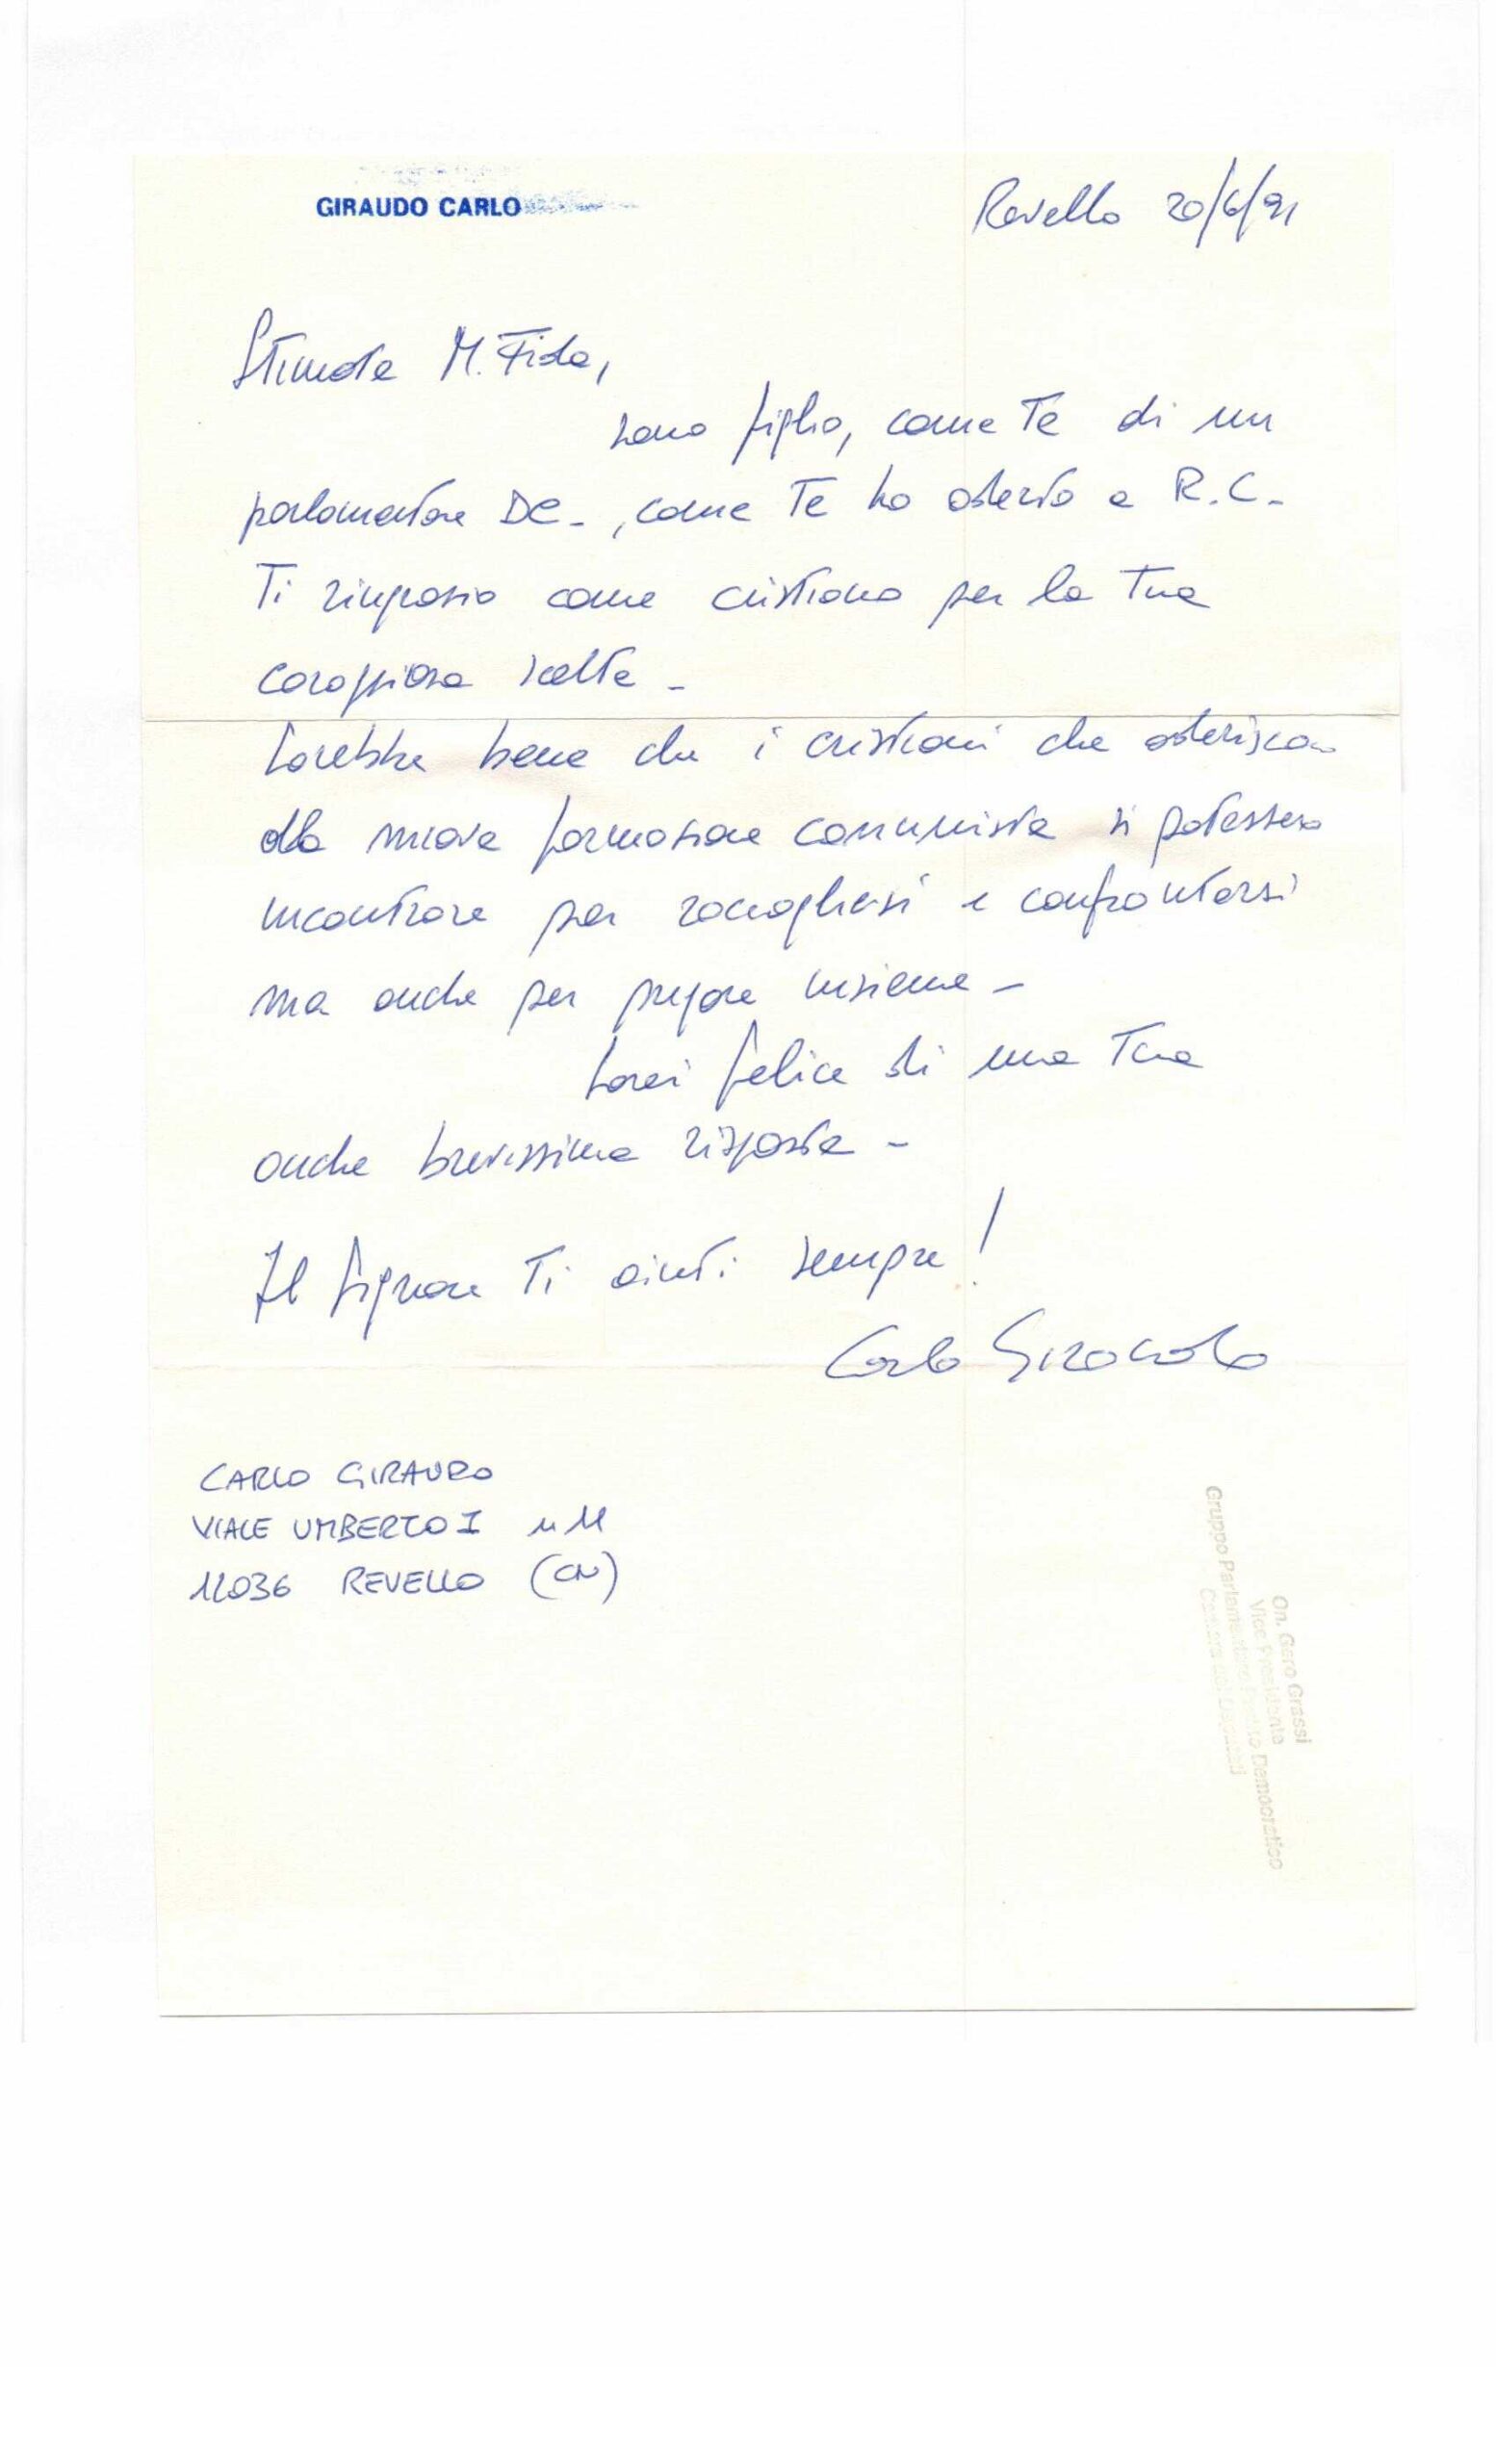 GIRAUDO CARLO
Revello 20/6/91
Stimata M. Fida,
sono figlio, come Te di un
parlamentare DC -, come Te ho aderito a R.C. -
Ti ringrazio come cristiano per la Tua
coraggiosa scelta -
Sarebbe bene che i cristiani che aderiscono
alla nuova formazione comunista si potessero
incontrare per raccogliersi e confrontarsi
ma anche per pregare insieme -
Sarei felice di una Tua
anche brevissima risposta -
Il Signore Ti aiuti sempre!
Carlo Giraudo
CARLO GIRAUDO
VIALE UMBERTO I n 11
12036 REVELLO (CN)
On. Gero Grassi
Vice Presidente
Gruppo Parlamentare Partito Democratico
Camera dei Deputati